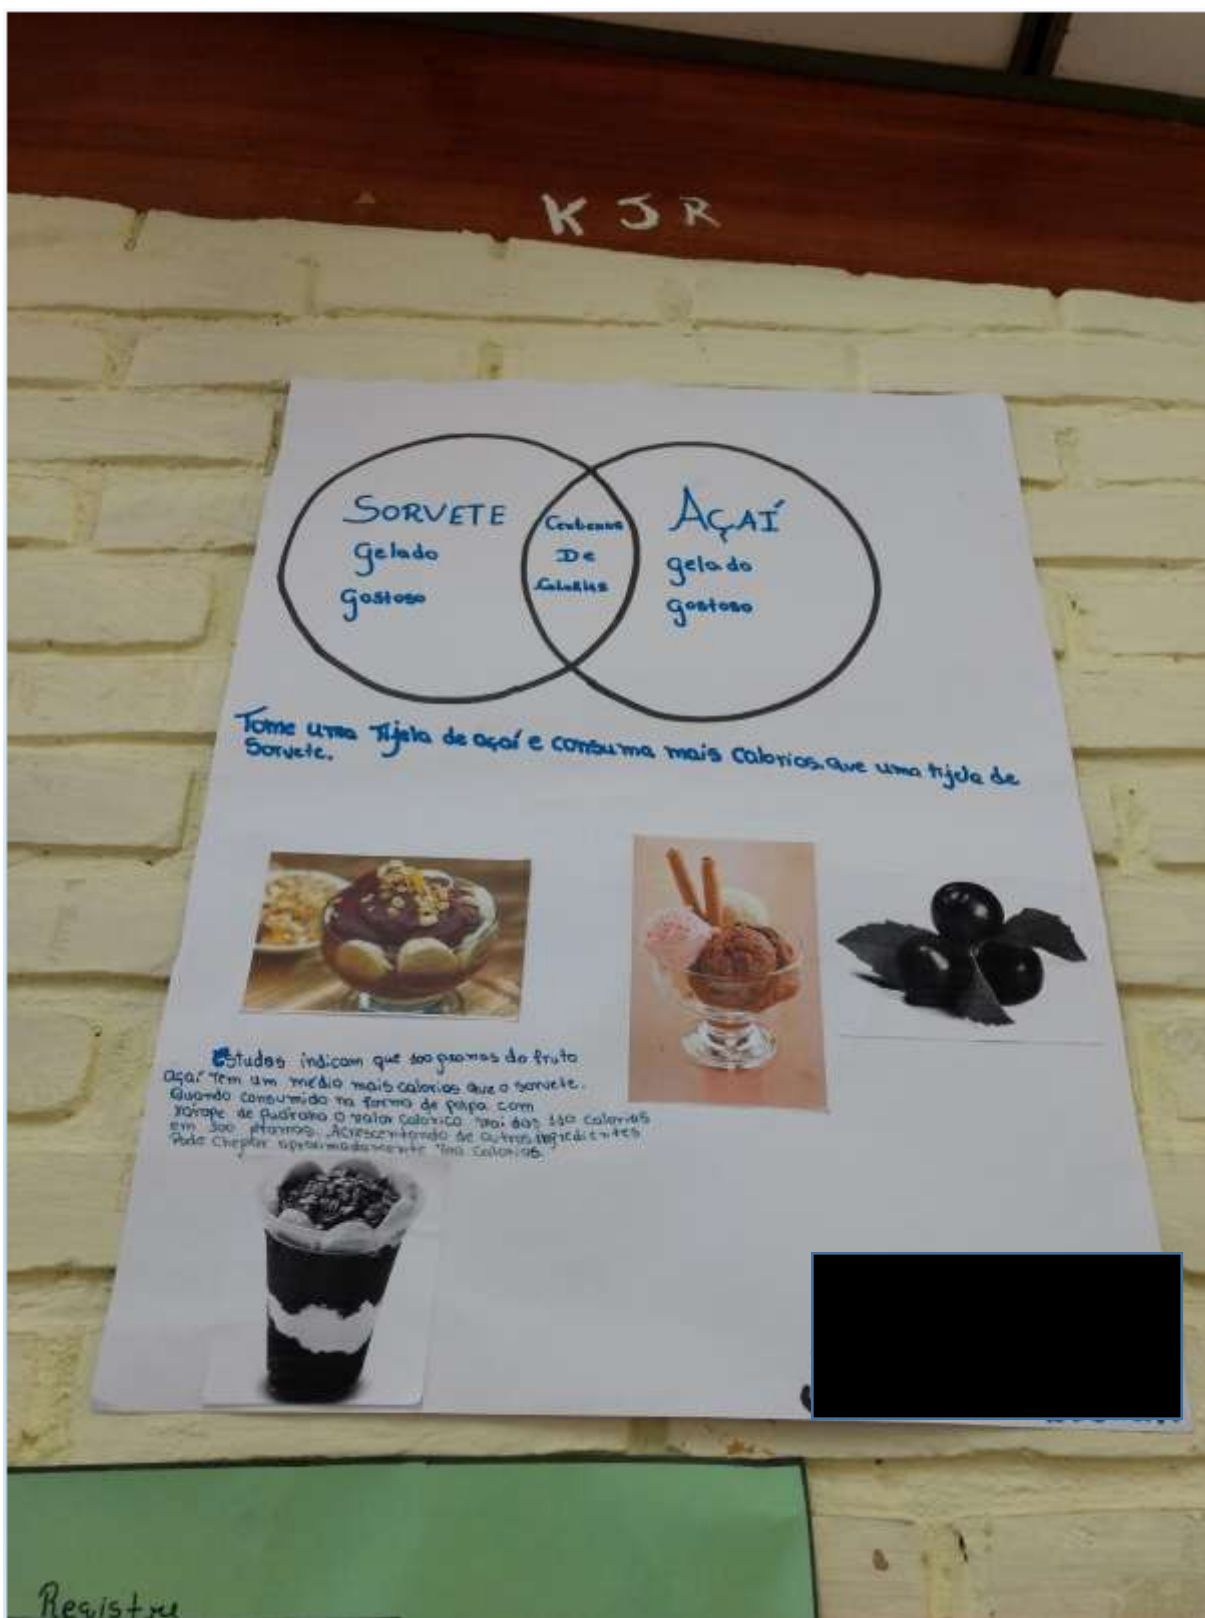 K J R
SORVETE
gelado
gostoso
De
Calorias
AÇAÍ
gelado
gostoso
Tome uma Tijela de açaí e consuma mais calorias. que uma tijela de
Sorvete.
Estudos indicam que 100 gramas do fruto
açaí Tem um médio mais calorias que o sorvete.
Quando consumido na forma de polpa com
xarope de guarana o valor calorico vai das 110 calorias
em 300 gramas. Acrescentando de outros ingredientes
Pode chegar aproximadamente calorias.
Registre